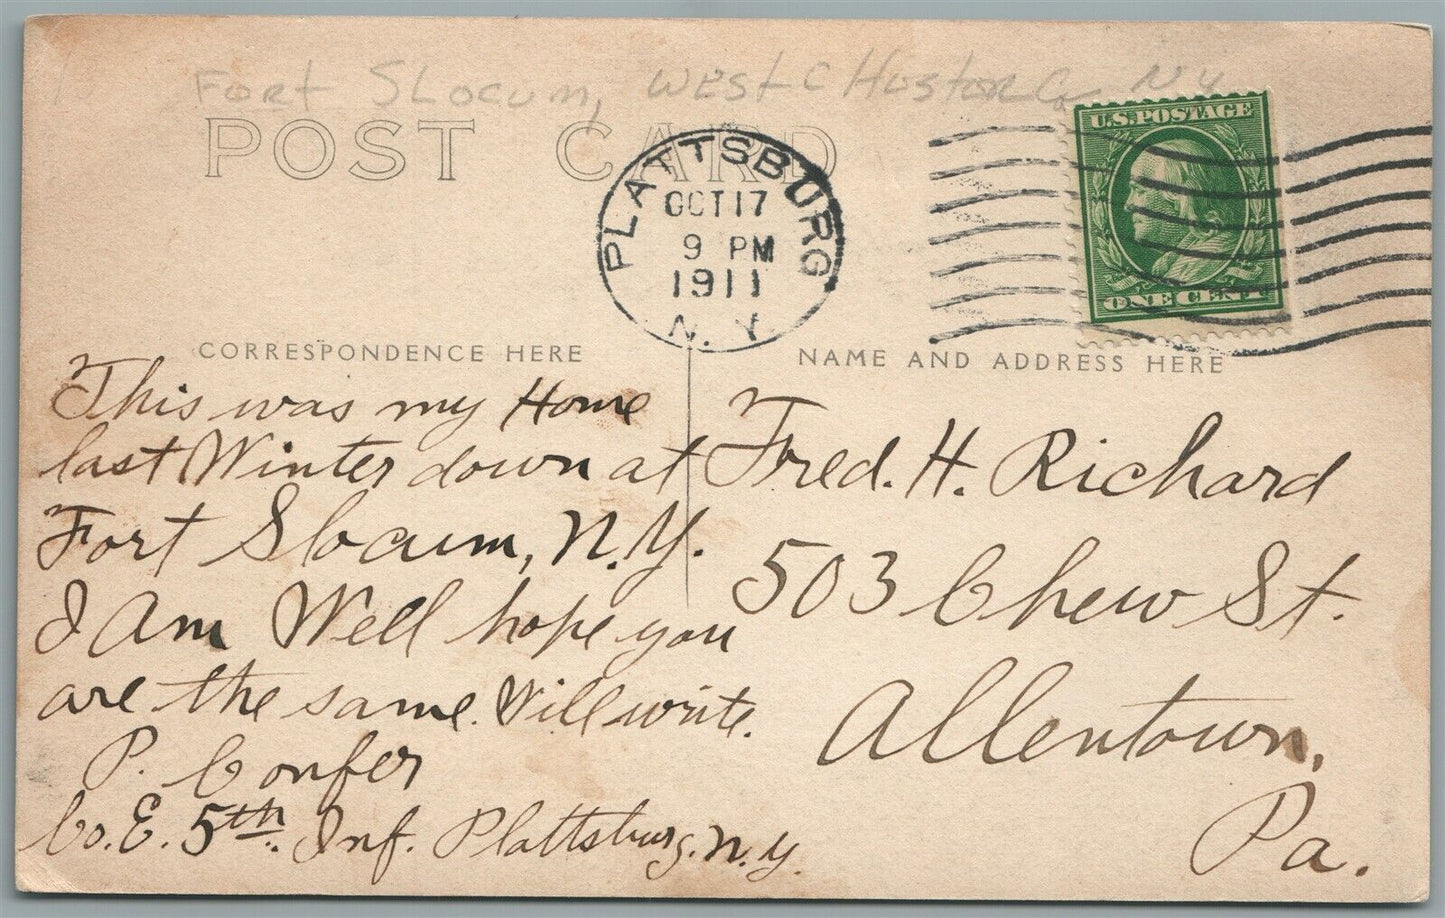 Fort Slocum, West Chustor Co N Y
POST CARD
PLATTSBURG
OCT 17
9 PM
1911
N. Y.
U.S. POSTAGE
ONE CENT
CORRESPONDENCE HERE
This was my Home
last Winter down at
Fort Slocum, N.Y.
I Am Well hope you
are the same. Will write.
P. Confer
Co. E. 5th. Inf. Plattsburg. N.Y.
NAME AND ADDRESS HERE
Fred. H. Richard
503 Chew St.
Allentown,
Pa.